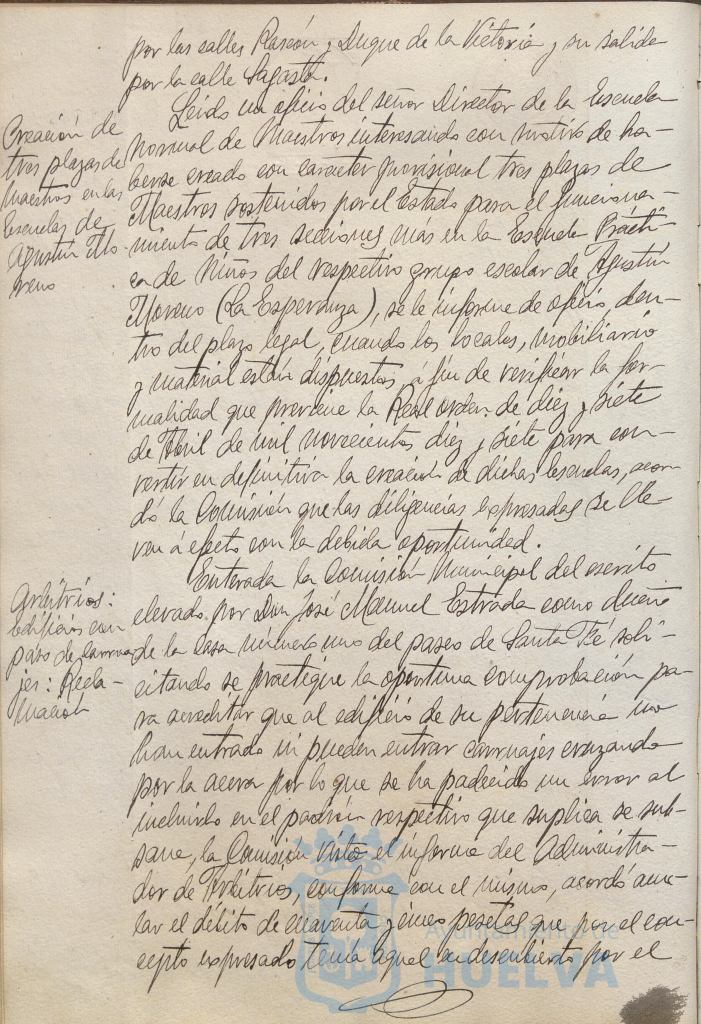 por las calles Rascón y Duque de la Victoria y su salida
por la calle Sagasta.
Creación de
tres plazas de
Maestros en las
Escuelas de
Agustín Mo-
reno
Leído un oficio del señor Director de la Escuela
Normal de Maestros interesando con motivo de ha-
berse creado con carácter provisional tres plazas de
Maestros sostenidos por el Estado para el funciona-
miento de tres secciones más en la Escuela Prácti-
ca de Niños del respectivo grupo escolar de Agustín
Moreno (La Esperanza), se le informe de oficio den-
tro del plazo legal, cuando los locales, mobiliario
y material estén dispuestos, á fin de verificar la for-
malidad que previene la Real orden de diez y siete
de Abril de mil novecientos diez y siete para con-
vertir en definitiva la creación de dichas escuelas, acor-
dó la Comisión que las diligencias expresadas se lle-
ven á efecto con la debida oportunidad.
Arbitrios:
Edificios con
paso de carrua
jes: Recla-
mación
Enterada la Comisión Municipal del escrito
elevado por Don José Manuel Estrada como dueño
de la casa número uno del paseo de Santa Fé soli-
citando se practique la oportuna comprobación pa-
ra acreditar que al edificio de su pertenencia no
han entrado ni pueden entrar carruajes cruzando
por la acera por lo que se ha padecido un error al
incluirlo en el padrón respectivo que suplica se sub-
sane, la Comisión visto el informe del Administra-
dor de Arbitrios, conforme con el mismo, acordó anu-
lar el débito de cuarenta y cinco pesetas que por el con-
cepto expresado tenía aquel en descubierto por el
Ayuntamiento de
HUELVA